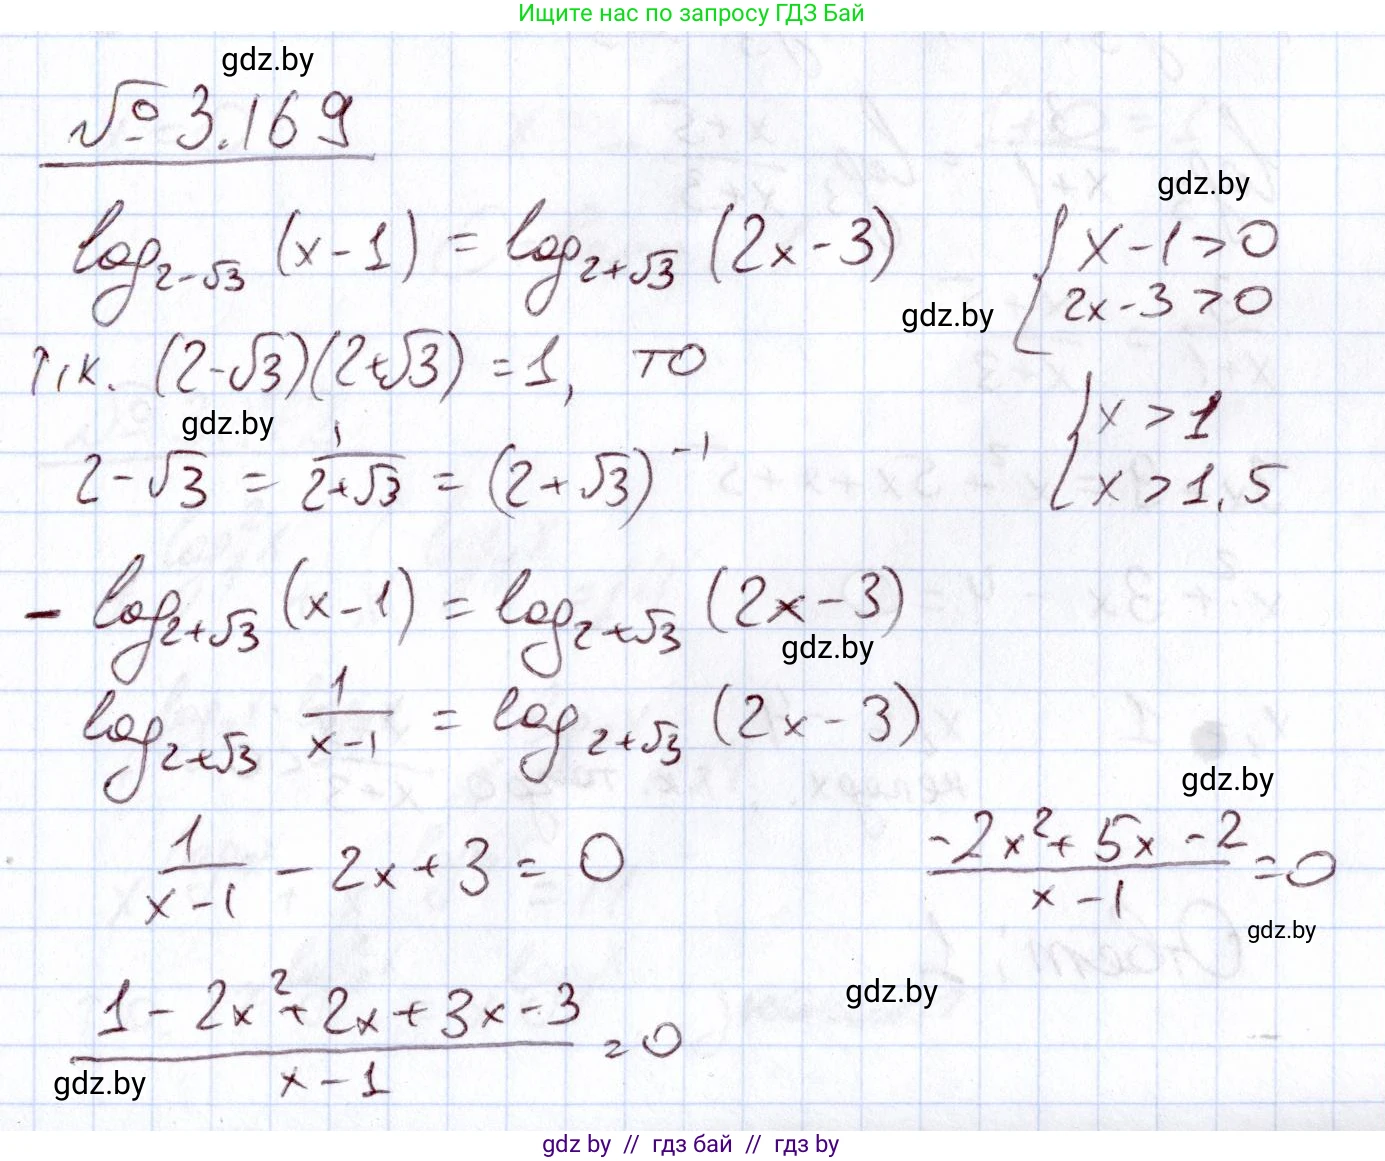 Ищите нас по запросу ГДЗ Бай
gdz.by
№ 3.169
gdz.by
log_{2-√3} (x-1) = log_{2+√3} (2x-3)
{ x-1>0
2x-3>0
gdz.by
т.к. (2-√3)(2+√3) = 1, то
gdz.by
{ x > 1
x > 1,5
2-√3 = 1/(2+√3) = (2+√3)^{-1}
- log_{2+√3} (x-1) = log_{2+√3} (2x-3)
gdz.by
log_{2+√3} 1/(x-1) = log_{2+√3} (2x-3)
gdz.by
1/(x-1) - 2x + 3 = 0
(-2x²+5x-2)/(x-1) = 0
gdz.by
gdz.by
(1-2x²+2x+3x-3)/(x-1) = 0
gdz.by
gdz by // гдз бай // гдз by